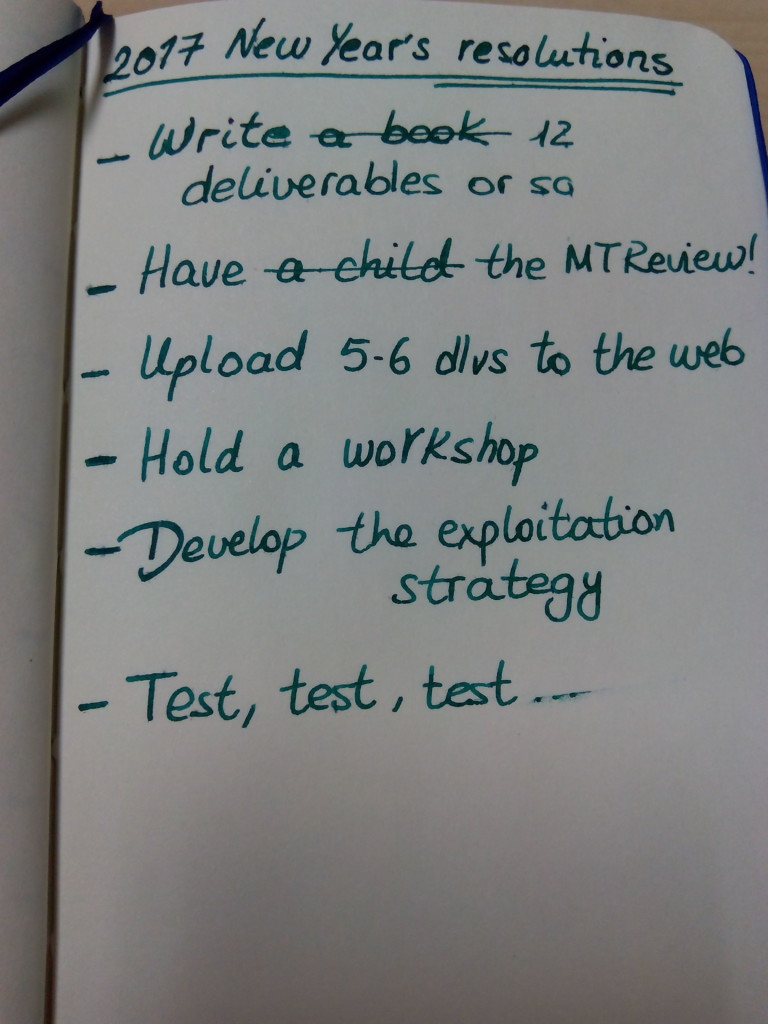 2017 New Year's resolutions
- Write a book 12
deliverables or so
- Have a child the MTReview!
- Upload 5-6 dlvs to the web
- Hold a workshop
- Develop the exploitation
strategy
- Test, test, test ...